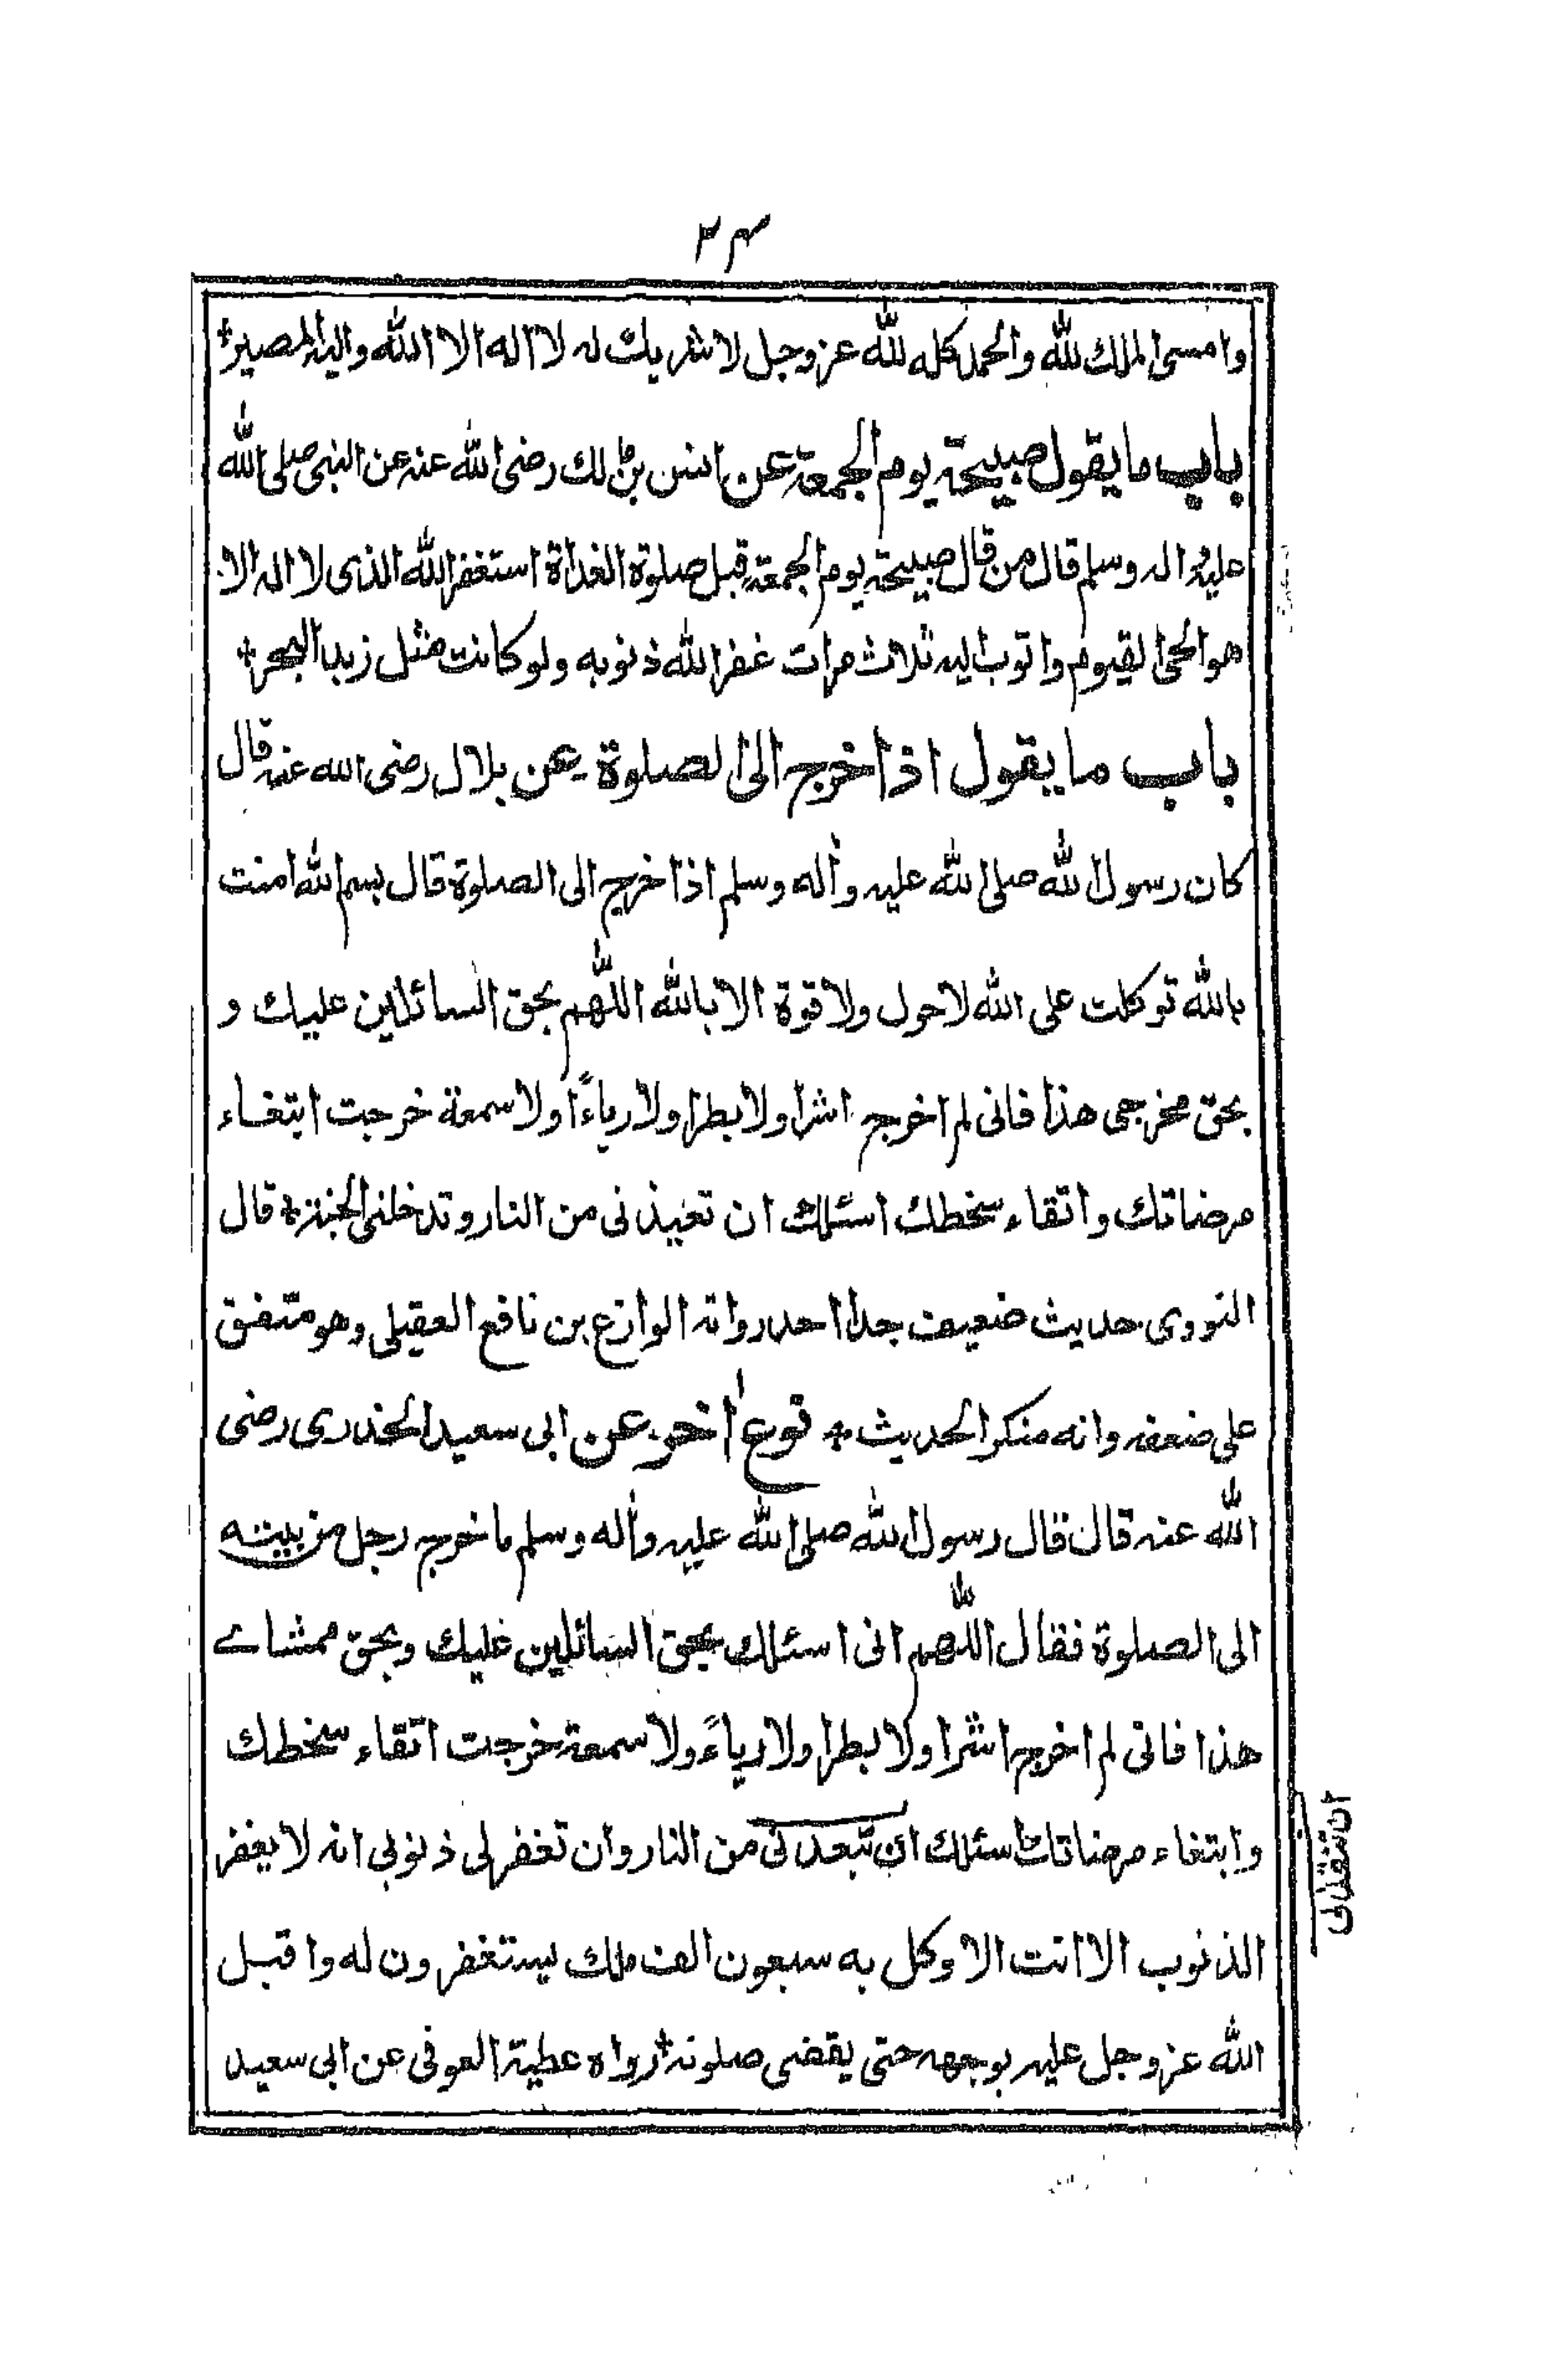 ٣٤
وامسى الملك لله والحمد كله لله عز وجل لا شريك له لا اله الا الله واليه المصير +
باب ما يقول صبيحة يوم الجمعة عن انس بن مالك رضى الله عنه عن النبى صلى الله
عليه واله وسلم قال من قال صبيحة يوم الجمعة قبل صلوة الغداة استغفر الله الذى لا اله الا
هو الحى القيوم واتوب اليه ثلاث مرات غفر الله ذنوبه ولو كانت مثل زبد البحر +
باب ما يقول اذا خرج الى الصلوة عن بلال رضى الله عنه قال
كان رسول الله صلى الله عليه وأله وسلم اذا خرج الى الصلوة قال بسم الله امنت
بالله توكلت على الله لا حول ولا قوة الا بالله اللّٰهم بحق السائلين عليك و
بحق مخرجى هذا فانى لم اخرج اشرا ولا بطرا ولا رياءً ا ولا سمعة خرجت ابتغاء
مرضاتك واتقاء سخطك اسئلك ان تعيذنى من النار وتدخلنى الجنة + قال
النووى حديث ضعيف جدا احد رواته الوازع بن نافع العقيلى وهو متفق
على ضعفه وانه منكر الحديث + نوع اٰخر عن ابى سعيد الخدرى رضى
الله عنه قال قال رسول الله صلى الله عليه وأله وسلم ما خرج رجل من بيته
الى الصلوة فقال اللّٰهم انى اسئلك بحق السائلين عليك وبحق ممشاے
هذا فانى لم اخرج اشرا ولا بطرا ولا رياءً ولا سمعة خرجت اتقاء سخطك
وابتغاء مرضاتك اسئلك ان تبعدنى من النار وان تغفر لى ذنوبى انه لا يغفر
ان تنقذنى
الذنوب الا انت الا وكل به سبعون الف ملك يستغفرون له واقبل
الله عز وجل عليه بوجهه حتى يقضى صلوته + رواه عطية العوفى عن ابى سعيد